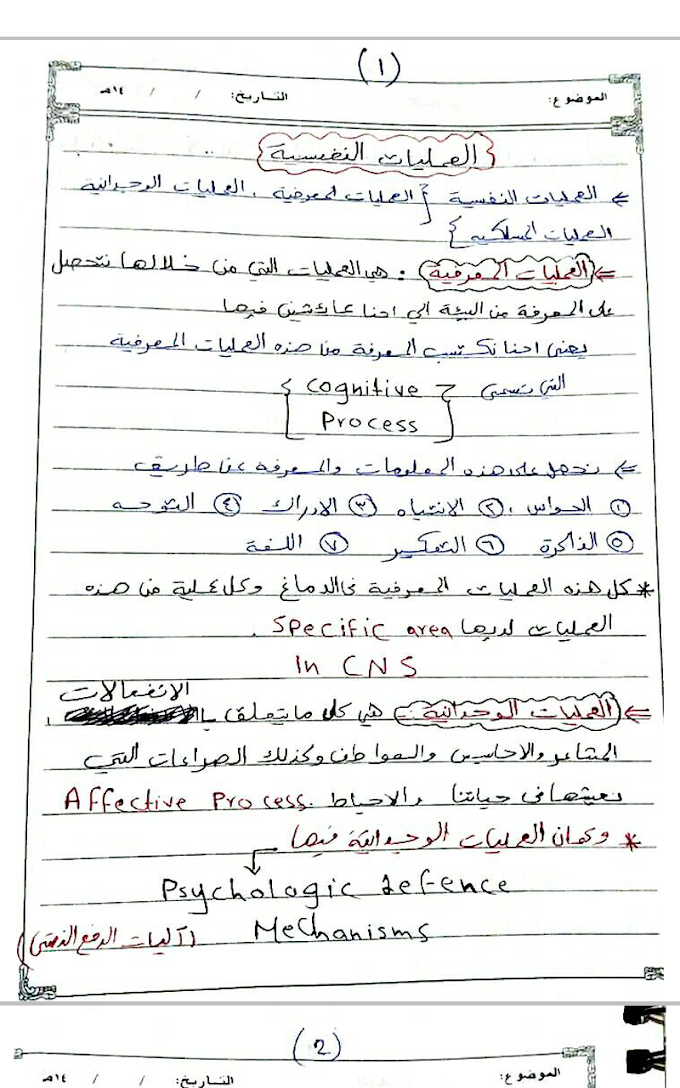 (1)
الموضوع: التاريخ: / / ١٤هـ
العمليات النفسية
⇐ العمليات النفسية { العمليات المعرفية ، العمليات الوجدانية
العمليات المسلكية }
⇐ العمليات المعرفية : هي العمليات التي من خلالها نتحصل
على المعرفة من البيئة الي احنا عائشين فيها
يعني احنا نكتسب المعرفة من هذه العمليات المعرفية
التي تسمى { Cognitive
Process }
⇐ نحصل على هذه المعلومات والمعرفة عن طريق
① الحواس ، ② الانتباه ③ الادراك ④ التوجه
⑤ الذاكرة ⑥ التفكير ⑦ اللغة
* كل هذه العمليات المعرفية في الدماغ وكل عملية من هذه
العمليات لديها specific area .
In CNS
الانفعالات
⇐ العمليات الوجدانية :- هي كل ما يتعلق بـا ،
المشاعر والاحاسيس والعواطف وكذلك الصراعات التي
نعيشها في حياتنا والاحباط . Affective Process
* وكمان العمليات الوجدانية فيها
Psychologic defence
Mechanisms (آليات الدفع النفسي)
(2)
الموضوع: التاريخ: / / ١٤هـ